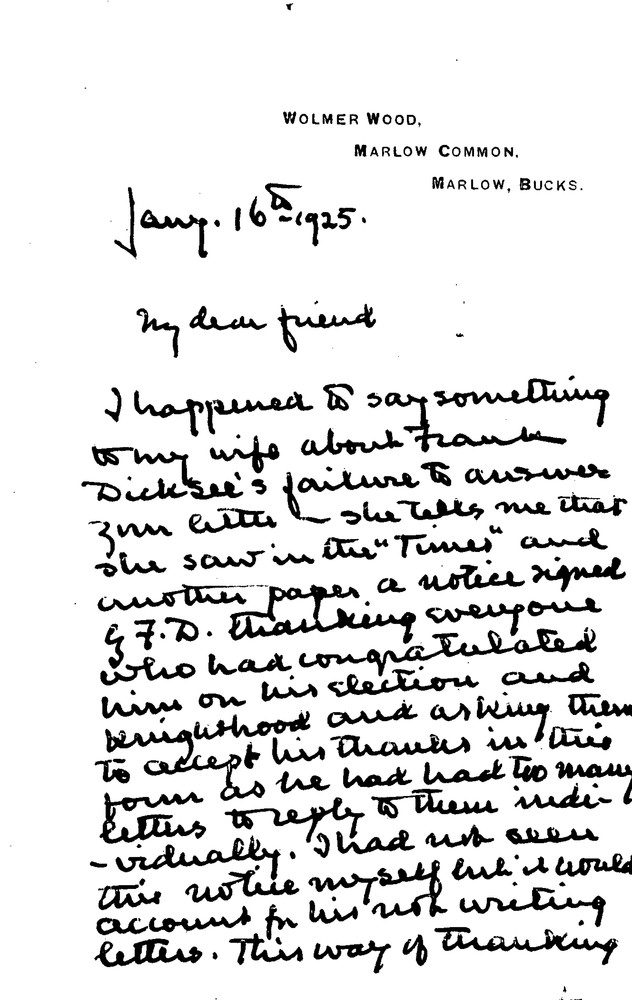 WOLMER WOOD,
MARLOW COMMON,
MARLOW, BUCKS.
Jany. 16th 1925.
My dear friend
I happened to say something
to my wife about Frank
Dicksee's failure to answer
your letter – she tells me that
she saw in the "Times" and
another paper a notice signed
by F.D. thanking everyone
who had congratulated
him on his election and
knighthood and asking them
to accept his thanks in this
form as he had had too many
letters to reply to them indi-
-vidually. I had not seen
this notice myself but it would
account for his not writing
letters. This way of thanking